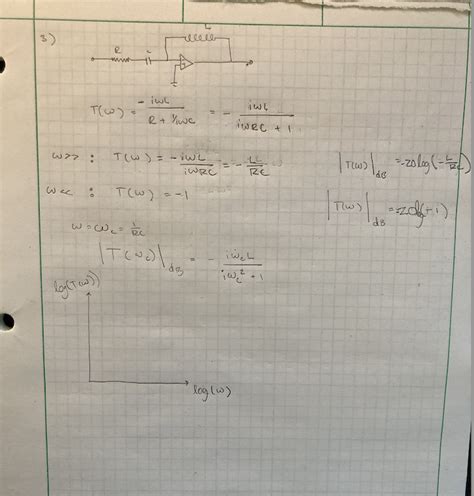 3)
L
R C
T(ω) = -iωL / (R + 1/iωC) = - iωL / (iωRC + 1)
ω>> : T(ω) = -iωL / iωRC = - L/RC
|T(ω)|dB = -20log(-L/RC)
ω<< : T(ω) = -1
|T(ω)|dB = -20log(-1)
ω = ωc = 1/RC
|T(ωc)|dB = - iωcL / (iωc² + 1)
log(T(ω))
log(ω)